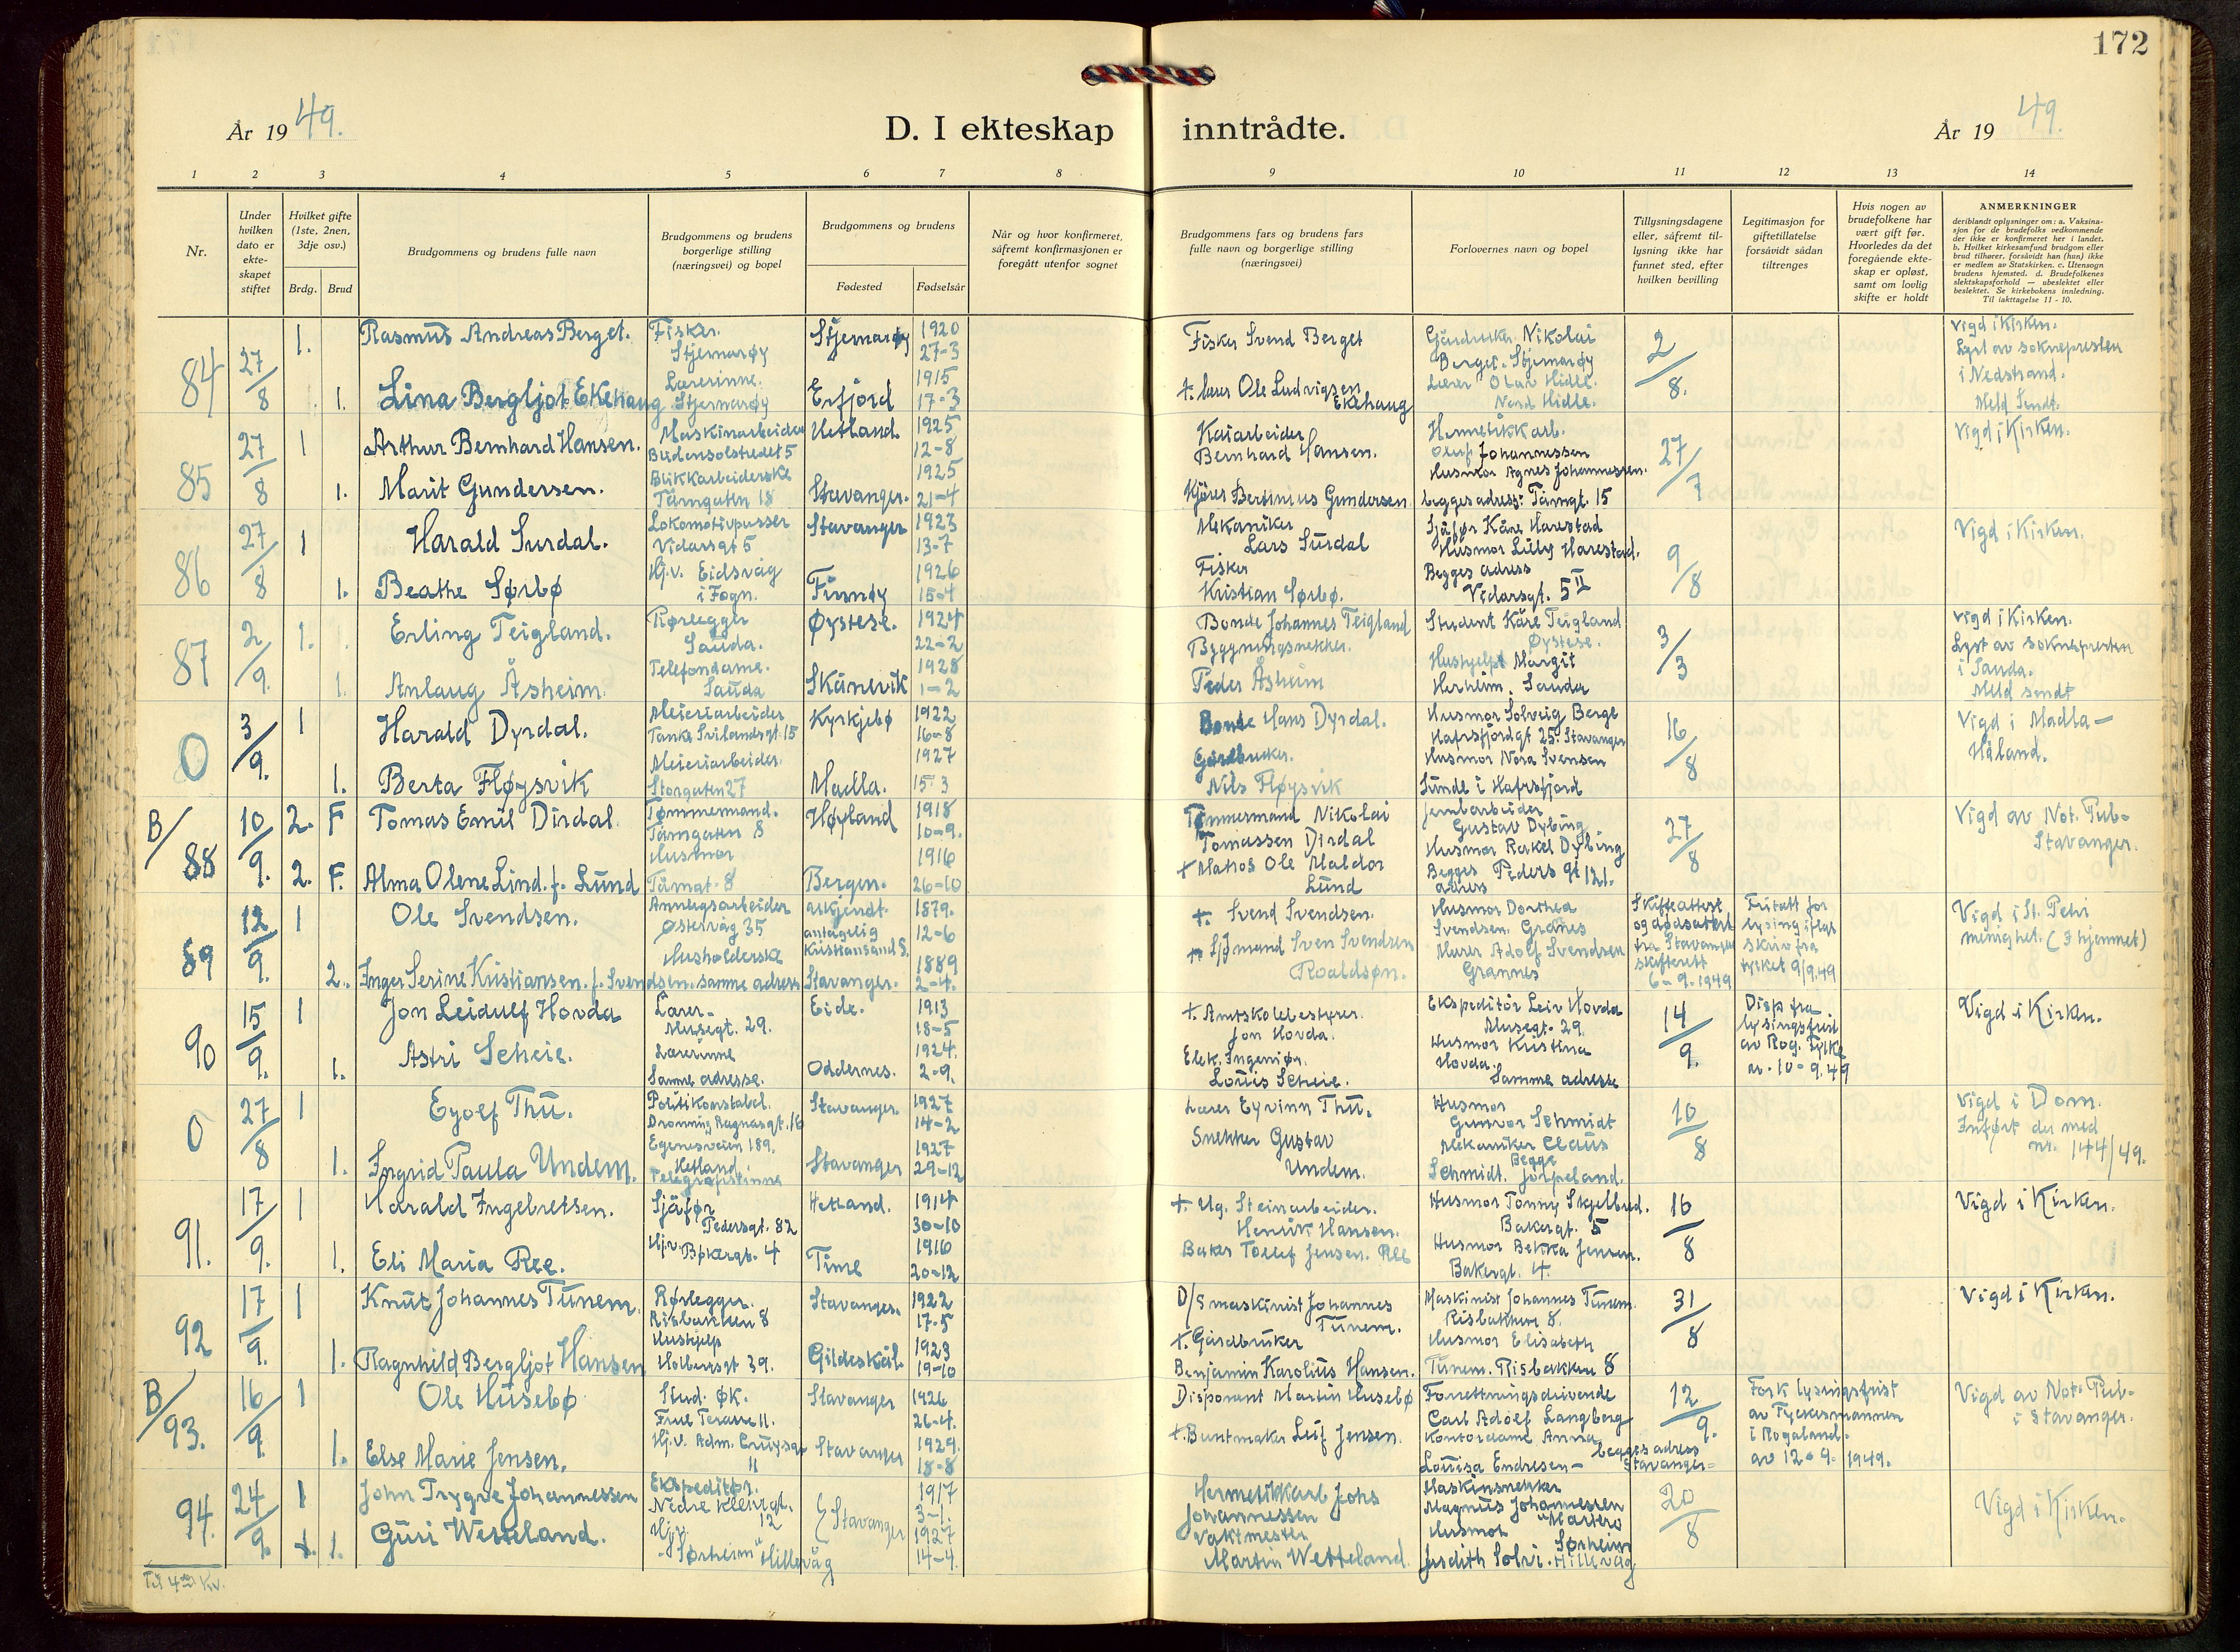 172
År 1949.
D. I ekteskap inntrådte.
År 1949.
1 2 3 4 5 6 7 8 9 10 11 12 13 14
Nr.
Under hvilken dato er ekte-skapet stiftet
Hvilket gifte (1ste, 2nen, 3dje osv.)
Brdg. Brud
Brudgommens og brudens fulle navn
Brudgommens og brudens borgerlige stilling (næringsvei) og bopel
Brudgommens og brudens
Fødested Fødselsår
Når og hvor konfirmeret, såfremt konfirmasjonen er foregått utenfor sognet
Brudgommens fars og brudens fars fulle navn og borgerlige stilling (næringsvei)
Forlovernes navn og bopel
Tillysningsdagene eller, såfremt til-lysning ikke har funnet sted, efter hvilken bevilling
Legitimasjon for giftetillatelse forsåvidt sådan tiltrenges
Hvis nogen av brudefolkene har vært gift før. Hvorledes da det foregående ekte-skap er opløst, samt om lovlig skifte er holdt
ANMERKNINGER
deriblandt oplysninger om: a. Vaksina-sjon for de brudefolks vedkommende der ikke er konfirmeret her i landet. b. Hvilket kirkesamfund brudgom eller brud tilhører, forsåvidt han (hun) ikke er medlem av Statskirken. c. Utensogn brudens hjemsted. d. Brudefolkenes slektskapsforhold — ubeslektet eller beslektet. Se kirkebokens innledning. Til iakttagelse 11 - 10.
84 27/8 1. Rasmus Andreas Berget. Fisker. Stjernarøy Stjernarøy 1920 27-3
Fisker Svend Berget Nikolai Berget. Stjernarøy 2/8. Vigd i Kirken. Lyst av soknepresten i Nedstrand. Meld Sendt.
1. Lina Bergljot Ekehaug Lærerinne. Stjernarøy Erfjord 1915 17-3
+ lærer Ole Ludvigsen Ekehaug Lærer Olav Hidle. Nord Hidle.
85 27/8 1 Arthur Bernhard Hansen. Maskinarbeider 5 Hetland 1925 12-8
Kaiarbeider Bernhard Hansen. Hermetikkarb. Oluf Johannessen 27/7 Vigd i Kirken.
1. Marit Gundersen. Blikkarbeiderske Tårngaten 18 Stavanger. 1925 21-4
Kjører Bertinius Gundersen Husmor Agnes Johannessen. begges adress: Tårngt. 15
86 27/8 1 Harald Surdal. Lokomotivpusser Vidarsgt 5 Stavanger 1923 13-7
Mekaniker Lars Surdal Sjåfør Kåre Harestad Husmor Lilly Harestad. 9/8 Vigd i Kirken.
1. Beathe Sørbø Hj.v. Eidsvåg i Fogn. Finnøy 1926 15-4
Fisker Kristian Sørbø. Begges adress Vidarsgt. 5 II
87 2/9. 1. Erling Teigland. Rørlegger Sauda. Øystese. 1924 22-2
Bonde Johannes Teigland Student Kåre Teigland Øystese. 3/3 Vigd i Kirken. Lyst av soknepresten i Sauda. Meld sendt
1. Anlaug Åsheim. Telefondame. Sauda Skånevik 1928 1-2
Byggningsnekker. Peder Åsheim Margit Herheim. Sauda
0 3/9. 1 Harald Dyrdal. Meieriarbeider Tanke Svilandsgt. 15 Kyrkjebø 1922 16-8
Bonde Hans Dyrdal. Husmor Solveig Berge Hafrsfjordgt 25. Stavanger 16/8 Vigd i Madla - Håland.
1. Berta Fløysvik Meieriarbeider. Storgaten 27 Madla. 1927 15-3
Gårdbruker. Nils Fløysvik Husmor Nora Svensen Sunde i Hafrsfjord
B/88 10/9. 2. F Tomas Emil Dirdal. Tømmermand. Tårngaten 8 Høyland 1918 10-9.
Tømmermand Nikolai Tomassen Dirdal jernbarbeider Gustav Dybing 27/8 Vigd av Not. Pub. Stavanger.
2. F. Alma Olene Lind. f. Lund Husmor Tårngt. 8 Bergen. 1916 26-10
+ Matros Ole Haldor Lund Husmor Rakel Dybing Begges adress Peders gt 121.
89 12/9. 1 Ole Svendsen. Anlegsarbeider Østervåg 35 ukjendt. antagelig Kristiansand S. 1879. 12-6
+. Svend Svendsen. Husmor Dorthea Svendsen. Grannes Skifteattest og dødsattest fra Stavanger skifterett 6-9-1949 Fritatt for lysing iflg. skriv fra fylket 9/9.49 Vigd i St. Petri menighet. (I hjemmet)
2. Inger Serine Kristiansen. f. Svendsen. Husholderske samme adress Stavanger. 1889 2-4.
+ Sjømand Sven Svendsen Roaldsøn. Murer Adolf Svendsen Grannes
90 15/9. 1 Jon Leidulf Hovda Lærer. Musegt. 29. Eide. 1913 18-5
+. Amtskolebestyrer. Jon Hovda. Ekspeditør Leiv Hovda Musegt. 29. 14/9. Disp fra lysingsfrist av Rog. Fylke av. 10-9.49 Vigd i Kirken.
1. Astri Scheie. Lærerinne Samme adresse. Oddernes. 1924. 2-9.
Elek. Ingeniør. Louis Scheie. Husmor Kristina Hovda. Samme adresse
0 27/8 1 Eyolf Thu. Politikonstabel. Dronning Ragnasgt. 16 Stavanger. 1927 14-2
Lærer Eyvinn Thu. Husmor Gunvor Schmidt 10/8 Vigd i Dom. Innført der med nr. 144/49.
1. Ingrid Paula Undem. Egenesveien 189. Hetland. Telegrafistinne Stavanger 1927 29-12
Snekker Gustav Undem. Mekaniker Claus Schmidt. Begge Jørpeland.
91. 17/9. 1 Harald Ingebretsen. Sjåfør Pedersgt. 82 Hetland. 1914 30-10
+ Ug. Steinarbeider. Henrik Hansen. Husmor Tonny Skjelbred. Bakergt. 5 16/8 Vigd i Kirken.
1. Eli Maria Ree. Hj.v. Bakergt. 4 Time 1916 20-12
Baker Tollef Jensen. Ree Husmor Bekka Jensen. Bakergt. 4.
92 17/9. 1 Knut Johannes Tunem. Rørlegger. Risbakken 8 Stavanger. 1922 17-5
D/S maskinist Johannes Tunem. Maskinist Johannes Tunem. Risbakken 8. 31/8 Vigd i Kirken.
1. Ragnhild Bergljot Hansen Hushjelp Holbergsgt 39. Gildeskål. 1923 19-10
+. Gårdbruker Benjamin Karolius Hansen. Husmor Elisabeth Tunem. Risbakken 8
B/93. 16/9 1 Ole Husebø Stud. øk. Frue Terasse 11. Stavanger 1926 26-4.
Disponent Martin Husebø Forretningsdrivende Carl Adolf Langberg 12/9. Fork lysingsfrist av Fylkesmannen i Rogaland. av 12-9. 1949. Vigd av Not. Pub. i Stavanger.
1. Else Marie Jensen. Hj.v. Adm. Cruysgt 11 Stavanger 1929. 18-8
+. Buntmaker Leif Jensen. Kontordame Anna Louisa Endresen - begges adress Stavanger.
94. 24/9. 1 John Trygve Johannessen Ekspeditør. Nedre Kleivgt. 12 Stavanger 1917 3-1.
Hermetikkarb Johs Johannessen Maskinsnekker Magnus Johannessen 20/8 Vigd i Kirken.
1. Guri Wetteland. Hj.v. "Sørheim" Hillevåg 1927 14-4.
Vaktmester Martin Wetteland. Husmor Judith Solvi. Sørheim Hillevåg
Til 4de Kv.